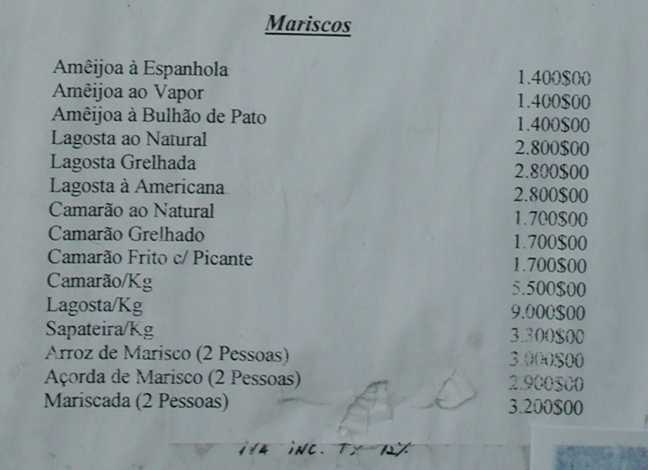 Mariscos
Amêijoa à Espanhola 1.400$00
Amêijoa ao Vapor 1.400$00
Amêijoa à Bulhão de Pato 1.400$00
Lagosta ao Natural 2.800$00
Lagosta Grelhada 2.800$00
Lagosta à Americana 2.800$00
Camarão ao Natural 1.700$00
Camarão Grelhado 1.700$00
Camarão Frito c/ Picante 1.700$00
Camarão/Kg 5.500$00
Lagosta/Kg 9.000$00
Sapateira/Kg 3.300$00
Arroz de Marisco (2 Pessoas) 3.000$00
Açorda de Marisco (2 Pessoas) 2.900$00
Mariscada (2 Pessoas) 3.200$00
IVA INC. TX 12%